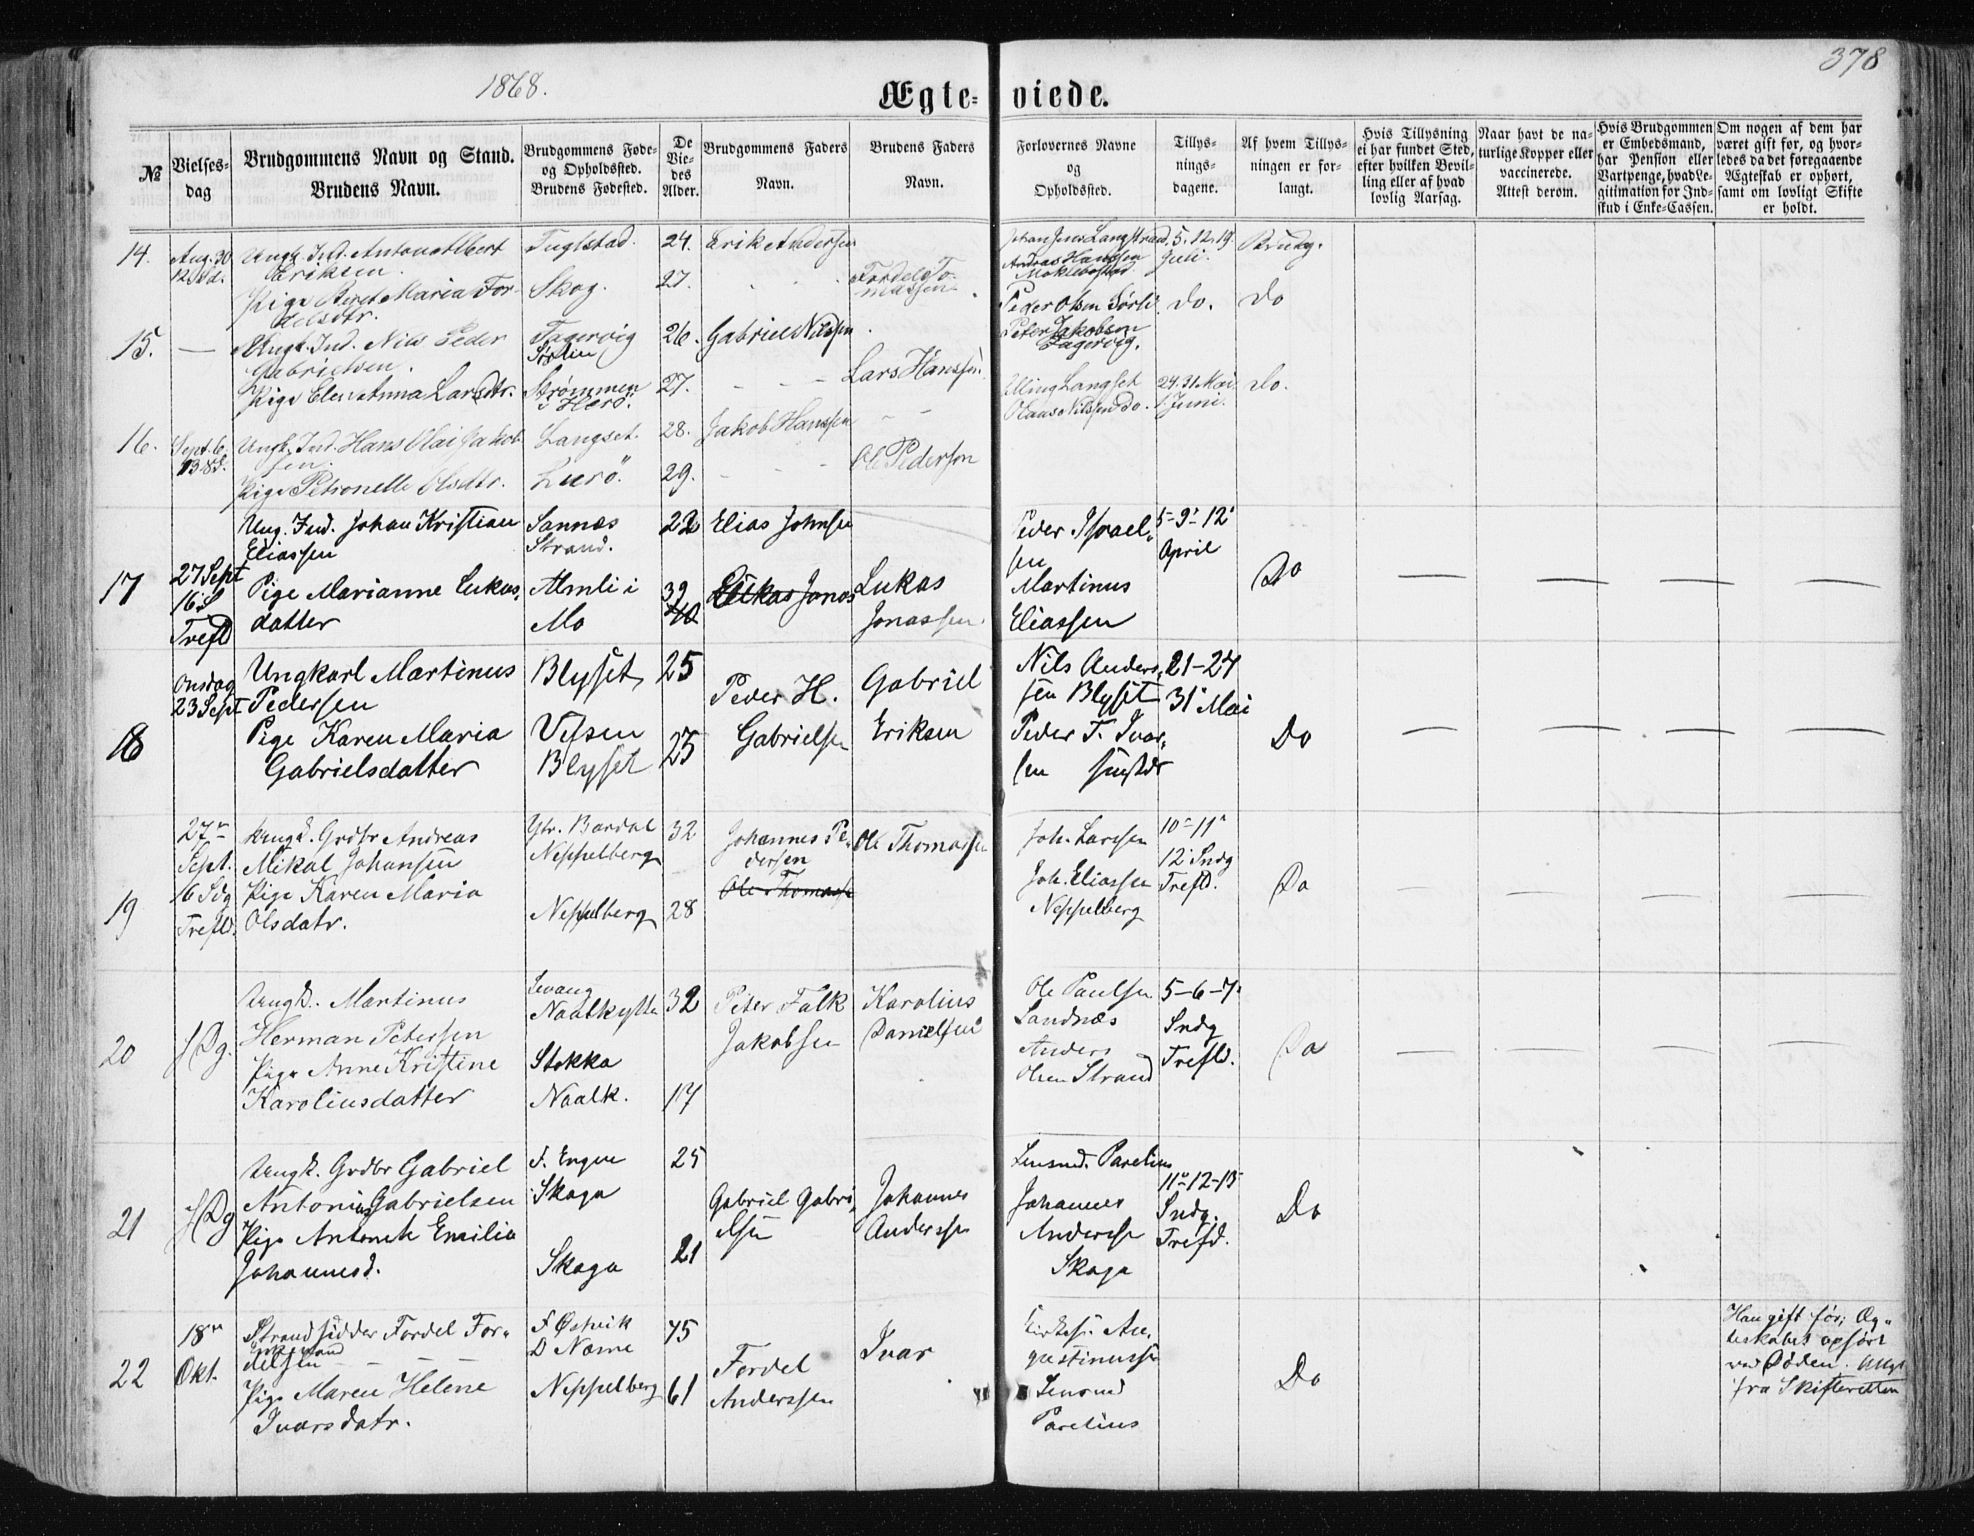 1868.
378
Ægteviede.
№
Vielsesdag
Brudgommens Navn og Stand.
Brudens Navn.
Brudgommens Føde-
og Opholdssted.
Brudens Fødested.
De
Vie-
des
Alder.
Brudgommens Faders
Navn.
Brudens Faders
Navn.
Forlovernes Navne
og
Opholdssted.
Tillys-
nings-
dagene.
Af hvem Tillys-
ningen er for-
langt.
Hvis Tillysning
ei har fundet Sted,
efter hvilken Bevil-
ling eller af hvad
lovlig Aarsag.
Naar havt de na-
turlige Kopper eller
vaccinerede.
Attest derom.
Hvis Brudgommen
er Embedsmand,
har Pension eller
Vartpenge, hvad Le-
gitimation for Ind-
skud i Enke-Cassen.
Om nogen af dem har
været gift før, og hvor-
ledes da det foregaaende
Ægteskab er ophørt,
samt om lovligt Skifte
er holdt.
14.
Aug. 30
12 Sd.
Ungk. Ind. Anton Albert
Eriksen.
Pige Beret Maria For-
delsdtr.
Fuglstad.
Skog.
24.
27.
Erik Andersen
Fordel To-
massen.
Johan Jens Langstrand
Andras Hanssen
Moklebostad
5. 12. 19.
Juli.
Brudg.
15.
Ungk. Ind. Nils Peder
Gabrielsen.
Pige Elen Anna Larsdtr.
Fagervig
Sørlien
Strømmen
i Herø.
26.
27.
Gabriel Nilssen
Lars Hanssen
Peder Olsen Sørli
Peter Jakobsen
Fagervig.
do.
Do
16.
Sept. 6
13 Sd.
Ungk. Ind. Hans Olai Jakob-
sen.
Pige Petronelle Olsdtr.
Langset.
Lurø.
28.
29.
Jakob Hanssen
Ole Pedersen
Elling Langset
Olaus Nilsen do.
24. 31 Mai
1. Juni.
Do.
17
27 Sept
16 S
Trefld
Ung. Ind. Johan Kristian
Eliassen
Pige Marianne Lukas-
datter
Sannæs
Strand.
Almli i
Mo
22
39
40
Elias Johnsen
Lukas Jonas
Lukas
Jonassen.
Peder Israel-
sen
Martinus
Eliassen
5- 9- 12
April
Do
18
Onsdag
23 Sept
Ungkarl Martinus
Pedersen
Pige Karen Maria
Gabrielsdatter
Blyset
Vefsen
Blyset
25
25
Peder H.
Gabrielsen
Gabriel
Eriksen
Nils Anders-
sen Blyset
Peder T. Ivar-
sen
21-24
31 Mai
Do
19
27
Sept.
16 Sdg
Trefld.
Ungk. Grdbr Andreas
Mikal Johansen
Pige Karen Maria
Olsdatr.
Ytr. Bardal
Neppelberg
Neppelberg
32
28
Johannes Pe-
dersen
Ole Thomasse
Ole Thomassen
Joh. Larssen
Joh. Eliassen
Neppelberg
10- 11-
12 Sndg
Trefld.
Do
20
Ungk. Martinus
Herman Petersen
Pige Anne Kristine
Karoliusdatter
Levang
Naalkytte
Stokka
Naalk.
32
17
Peter Falk
Jakobsen
Karolius
Danielsen
Ole Paulsen
Sandnæs
Anders
Olsen Strand
5-6-7
Sndg
Trefld.
Do
21
Ungk. Grdbr Gabriel
Antonius Gabrielsen
Pige Antonete Emilie
Johannesd.
F. Engen
Skoga
Skaga
25
21
Gabriel Gabri-
elsen
Johannes
Anderssen
Lensmd. Parelius
Johannes
Anderssen
Skaga
11- 12-13
Sndg.
Trefd.
Do
22
18
Okt.
Strandsidder Fordel For-
delsen
Enkemand
Pige Maren Helene
Ivarsdatr.
F Østvik
D Næsne
Neppelberg
75
61
Fordel
Anderssen
Ivar
Augustinussen
Lensmd
Parelius
Do
Han gift før; Æg-
teskabet opført
ved Døden. Attest
fra Skifteretten